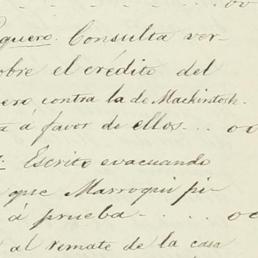 quero. Consulta ver-
obre el crédito del
ero contra la de Mackintosh
a á favor de ellos... oo
: Escrito evacuando
que Marroqui pi-
á prueba - ... oo
al remate de la casa